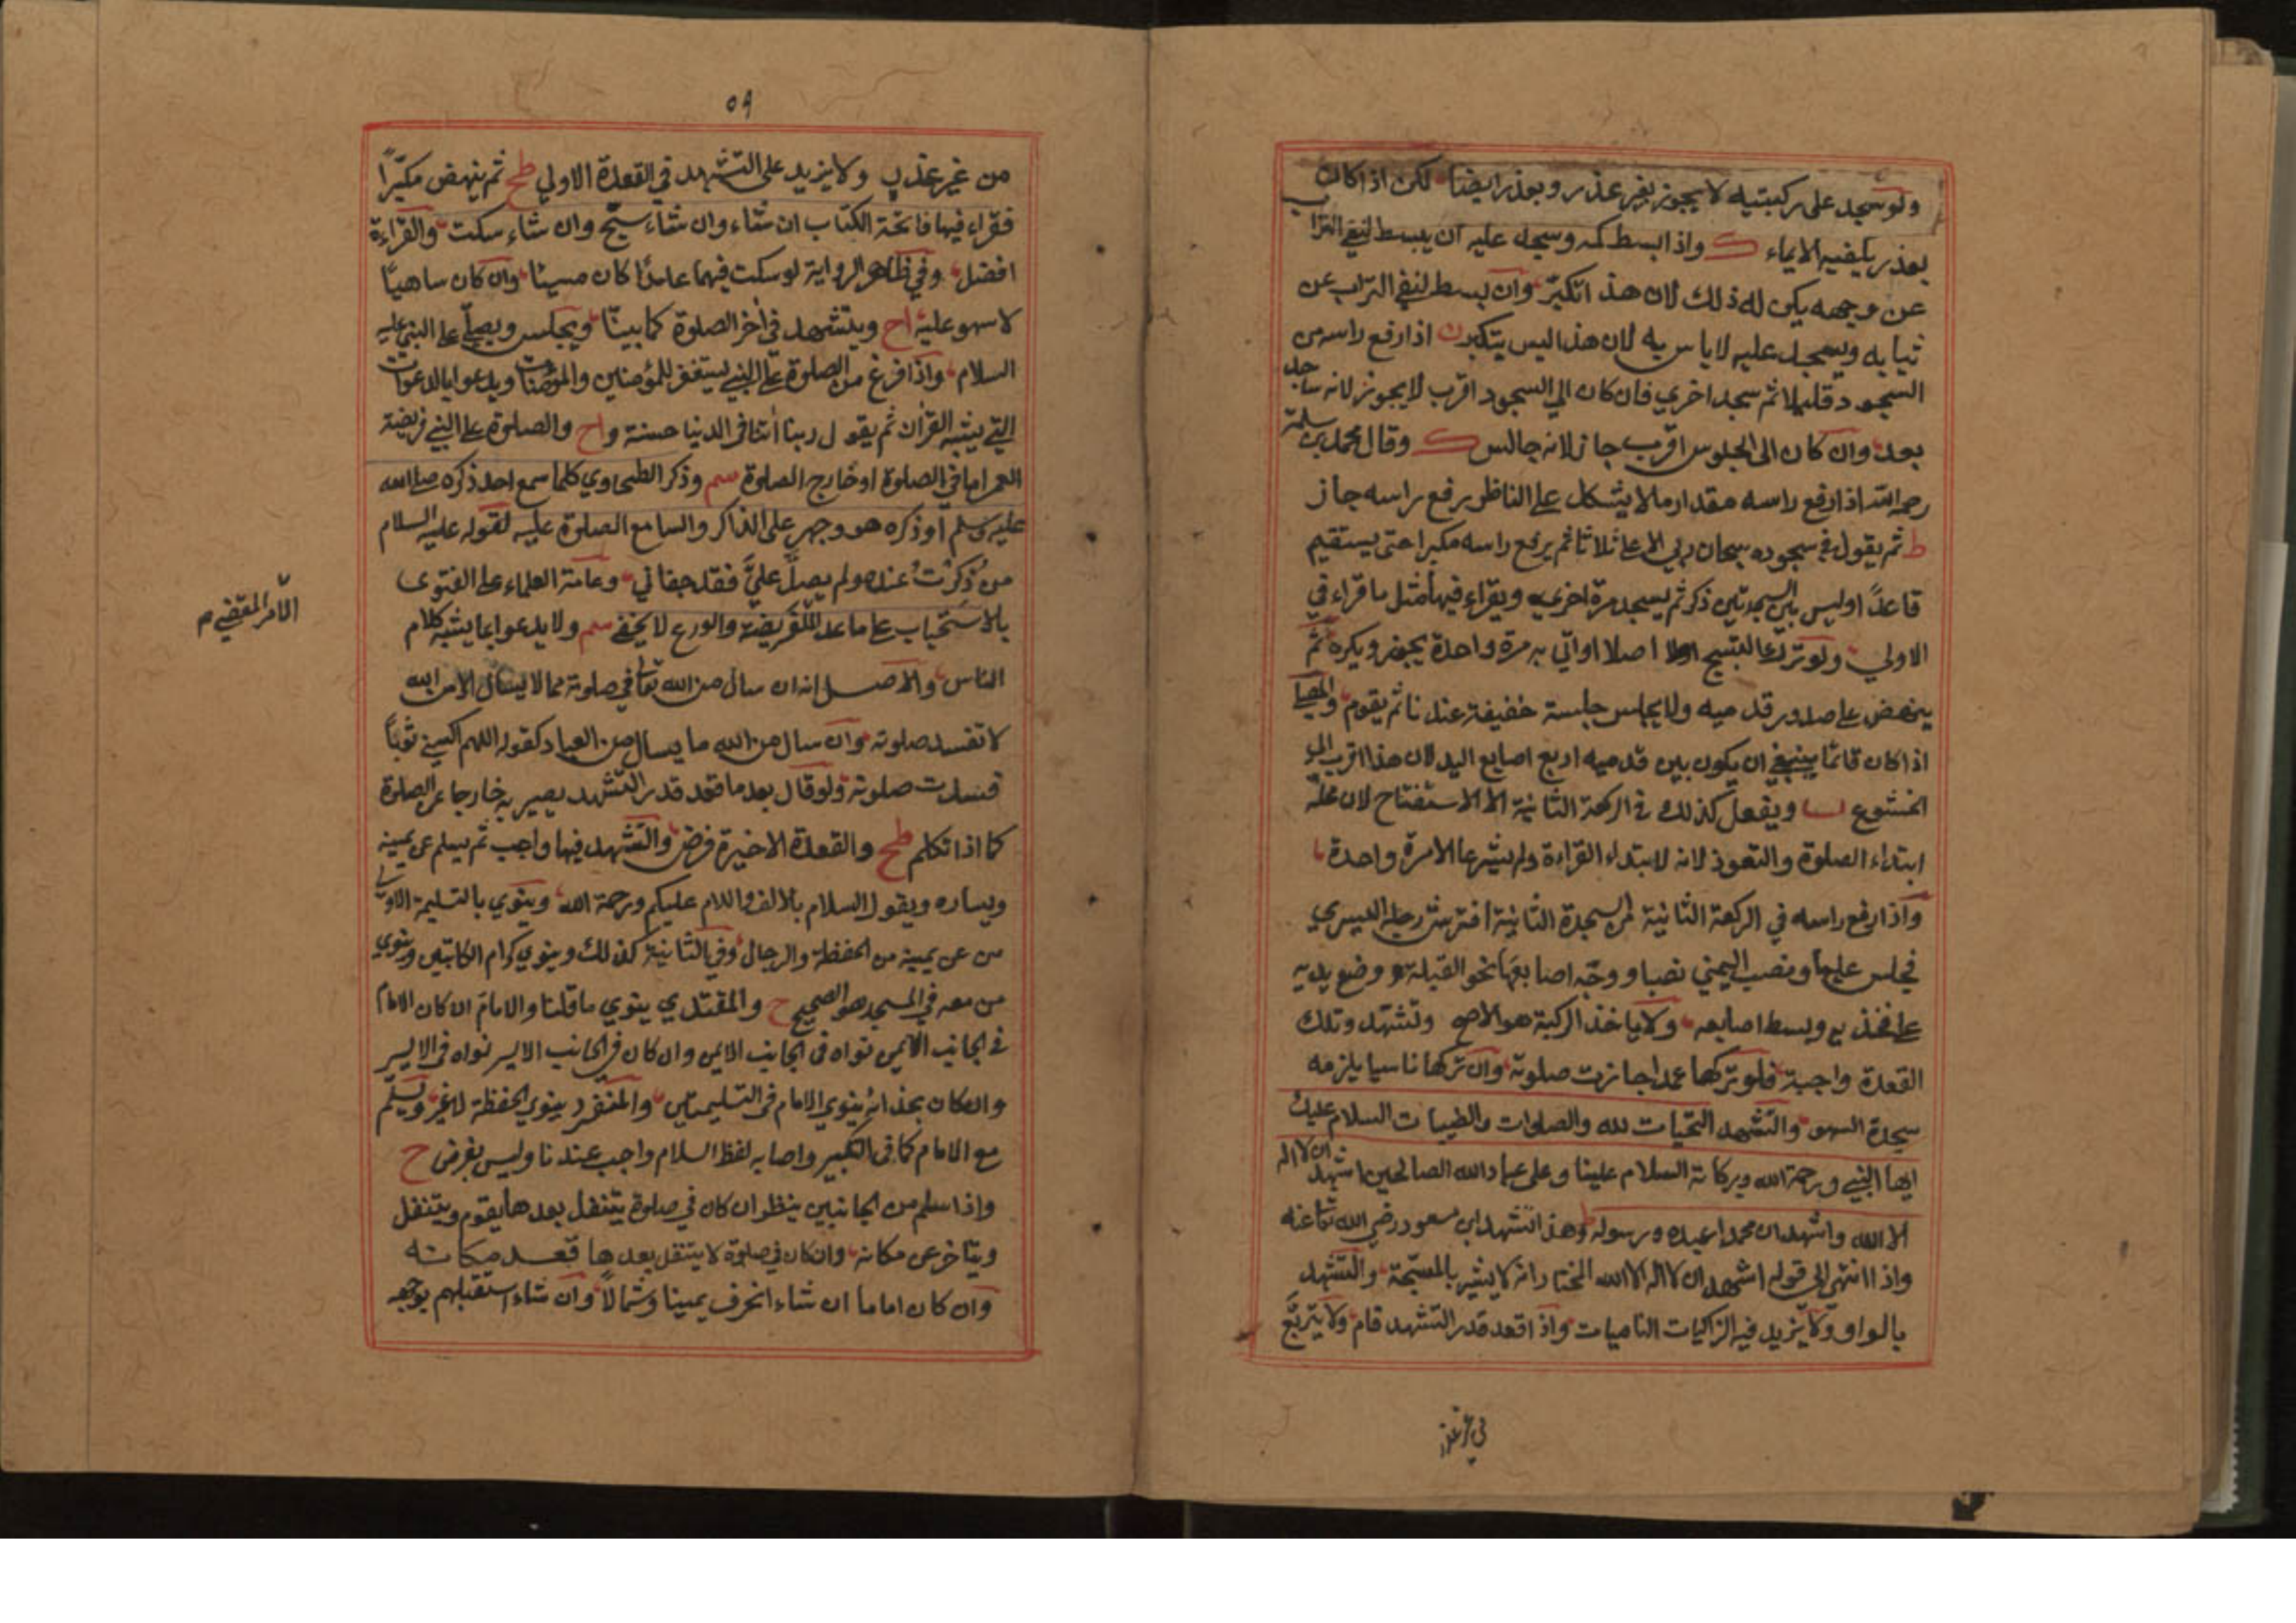 ولو سجد على ركبتيه لا يجوز بغير عذر وبعذر ايضا لكن اذا كان
بعذر يكفيه الايماء ک واذا بسط كمه وسجد عليه ان بسط لنفي التراب
عن وجهه يكره له ذلك لان هذا تكبّر وان بسط لنفي التراب عن
ثيابه ويسجد عليه لا باس به لان هذا ليس بتكبر ن اذا رفع راسه من
السجود قليلا ثم سجد اخري فان كان الي السجود اقرب لا يجوز لانه ساجد
بعد وان كان الى الجلوس اقرب جاز لانه جالس ک وقال محمد بن سلمة
رحمه الله اذا رفع راسه مقدار ما لا يشكل على الناظر رفع راسه جاز
ط ثم يقول في سجوده سبحان ربي الاعلى ثلاثا ثم يرفع راسه مكبرا حتى يستقيم
قاعدًا وليس بين السجدتين ذكر ثم يسجد مرة اخري ويقراء فيها مثل ما قراء في
الاولي ولو ترك التسبيح اصلا او اتي به مرة واحدة يجوز ويكره ثم
ينهض على صدور قدميه ولا يجلس جلسة خفيفة عندنا ثم يقوم والمصلي
اذا كان قائما ينبغي ان يكون بين قدميه اربع اصابع اليد لان هذا اقرب الي
الخشوع ويفعل كذلك في الركعة الثانية الا الاستفتاح لان محله
ابتداء الصلوة والتعوذ لانه لابتداء القراءة ولم يشرعا الا مرة واحدة
واذا رفع راسه في الركعة الثانية من السجدة الثانية افترش رجله اليسري
فجلس عليها ونصب اليمني نصبا ووجّه اصابعها نحو القبلة ووضع يديه
على فخذيه وبسط اصابعه ولا ياخذ الركبة هو الاصح وتشهد وتلك
القعدة واجبة فلو تركها عمدا جازت صلوته وان تركها ناسيا يلزمه
سجدة السهو والتشهد التحيات لله والصلوات والطيبات السلام عليك
ايها النبي ورحمة الله وبركاته السلام علينا وعلى عباد الله الصالحين اشهد ان لا اله
الا الله واشهد ان محمدا عبده ورسوله وهذا تشهد ابن مسعود رضي الله تعا عنه
واذا انتهى الي قوله اشهد ان لا اله الا الله المختار انه لا يشير بالمسبّحة والتشهد
بالواو ولا يزيد فيه الزاكيات الناميات واذا قعد قدر التشهد قام ولا يتربّع
من غير عذر
٥٩
من غير عذر ولا يزيد على التشهد في القعدة الاولي طح ثم ينهض مكبّرًا
فقراء فيها فاتحة الكتاب ان شاء وان شاء سبّح وان شاء سكت والقراءة
افضل وفي ظاهر الرواية لو سكت فيهما عامدًا كان مسيئا وان كان ساهيًا
لا سهو عليه اح ويتشهد في أخر الصلوة كما بينّا ويجلس ويصلّي على النبي عليه
السلام واذا فرغ من الصلوة على النبي يستغفر للمؤمنين والمؤمنات ويدعوا بالدعوات
التي يشبه القرأن ثم يقول ربنا أتنا في الدنيا حسنة واح والصلوة على النبي فريضة
العمر اما في الصلوة او خارج الصلوة سم وذكر الطحاوي كلما سمع احد ذكره صلى الله
عليه وسلم او ذكره هو وجهر على الذاكر والسامع الصلوة عليه لقوله عليه السلام
من ذُكرْتُ عنده ولم يصلّ عليَّ فقد جفاني وعامة العلماء على الفتوى
بالاستحباب على ما عدا الفريضة والورع لا يخفى سم ولا يدعوا بما يشبه كلام
الناس والاصل انه ان سال من الله تعا في صلوته مما لا يسأل الا من الله
لا تفسد صلوته وان سال من الله ما يسال من العباد كقوله اللهم اكسني ثوبًا
فسدت صلوته ولو قال بعد ما قعد قدر التشهد يصير به خارجا عن الصلوة
كما اذا تكلم طح والقعدة الاخيرة فرض والتشهد فيها واجب ثم يسلم عن يمينه
ويساره ويقول السلام بالالف واللام عليكم ورحمة الله وينوي بالتسليمة الاولي
من عن يمينه من الحفظة والرجال وفي الثانية كذلك وينوي كرام الكاتبين وينوي
من معه في المسجد هو الصحيح ح والمقتدي ينوي ما قلنا والامام ان كان الامام
في الجانب الايمن نواه في الجانب الايمن وان كان في الجانب الايسر نواه في الايسر
وان كان بحذائه ينوي الامام في التسليمتين والمنفرد ينوي الحفظة لا غير ويسلم
مع الامام كما في التكبير واصابه لفظ السلام واجب عندنا وليس بفرض ح
واذا سلم من الجانبين ينظر ان كان في صلوة يتنفل بعدها يقوم ويتنفل
ويتاخر عن مكانه وان كان في صلوة لا يتنفل بعدها قعد مكانه
وان كان اماما ان شاء انحرف يمينا وشمالًا وان شاء استقبلهم بوجهه